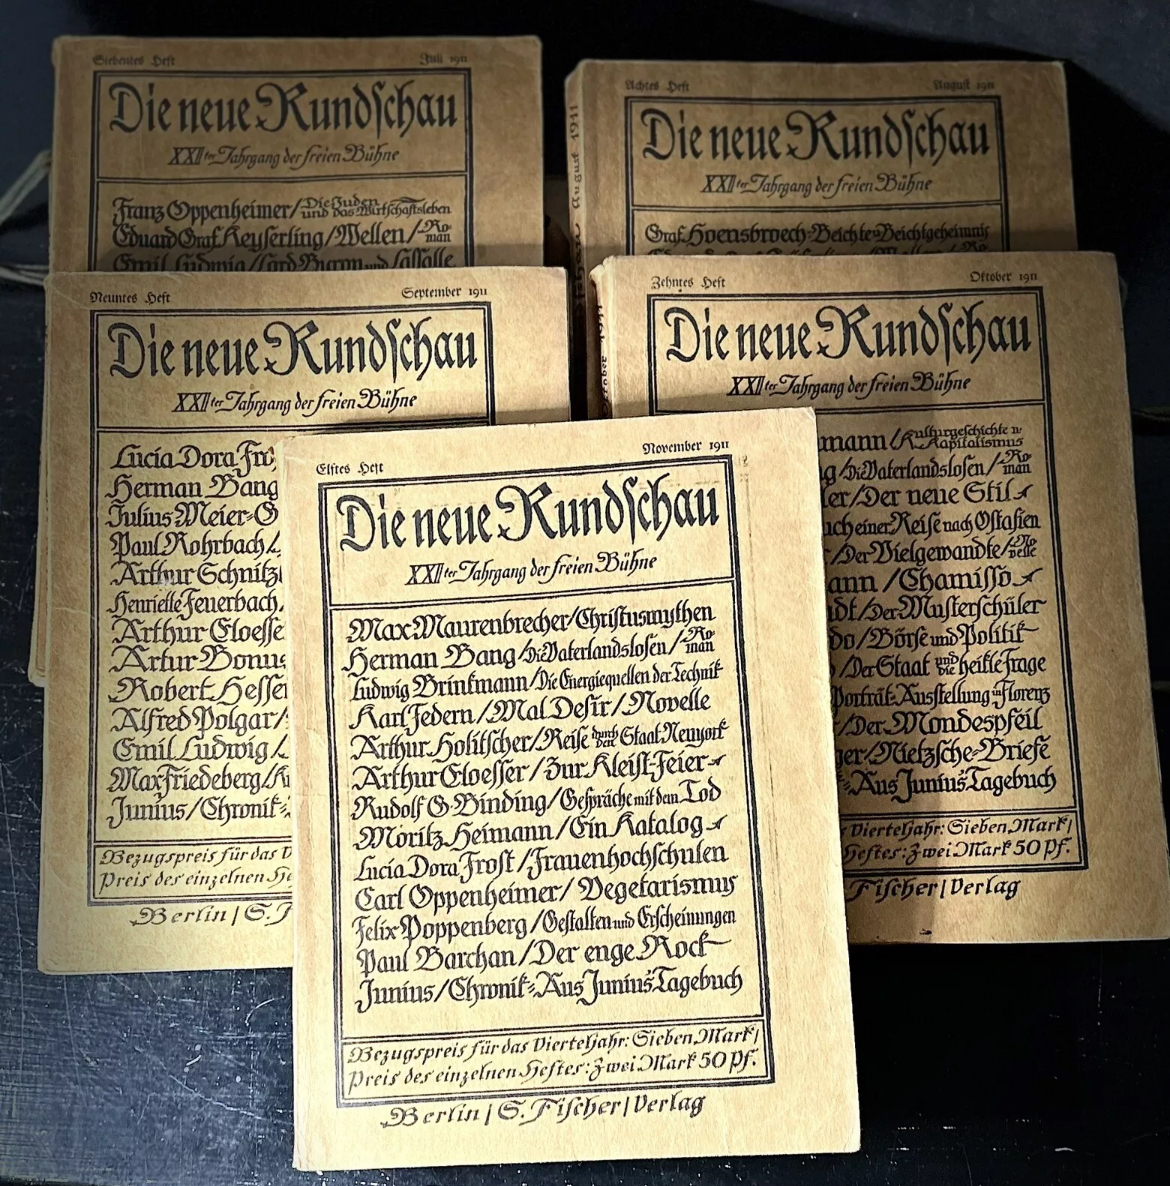 Siebentes Heft
Juli 1911
Die neue Rundschau
XXIIter Jahrgang der freien Bühne
Franz Oppenheimer/Die Juden und das Wirtschaftsleben
Eduard Graf Keyserling/Wellen/Roman
Emil Ludwig/Lord Byron und Lassalle
Achtes Heft
August 1911
August 1911
Die neue Rundschau
XXIIter Jahrgang der freien Bühne
Graf Hoensbroech-Beichte-Beichtgeheimnis
Neuntes Heft
September 1911
Die neue Rundschau
XXIIter Jahrgang der freien Bühne
Lucia Dora Fro
Herman Bang
Julius Meier-G
Paul Rohrbach/
Arthur Schnitzl
Henriette Feuerbach
Arthur Eloesse
Artur Bonus
Robert Hessen
Alfred Polgar/
Emil Ludwig/
Max Friedeberg/K
Junius/Chronik
Bezugspreis für das V
Preis des einzelnen He
Berlin/S. F
Zehntes Heft
Oktober 1911
Die neue Rundschau
XXIIter Jahrgang der freien Bühne
mann/Kulturgeschichte u. Kapitalismus
g/Die Vaterlandslosen/Roman
ler/Der neue Stil
uch einer Reise nach Ostasien
/Der Vielgewandte/Novelle
ann/Chamisso
dt/Der Musterschüler
do/Börse und Politik
/Der Staat und die heikle Frage
Porträt-Ausstellung in Florenz
/Der Mondespfeil
ger/Nietzsche-Briefe
Aus Junius' Tagebuch
Vierteljahr: Sieben Mark/
Heftes: Zwei Mark 50 Pf.
Fischer/Verlag
Elftes Heft
November 1911
18
Die neue Rundschau
XXIIter Jahrgang der freien Bühne
Max Maurenbrecher/Christusmythen
Herman Bang/Die Vaterlandslosen/Roman
Ludwig Brinkmann/Die Energiequellen der Technik
Karl Federn/Mal Desir/Novelle
Arthur Holitscher/Reise durch den Staat Neuyork
Arthur Eloesser/Zur Kleist-Feier
Rudolf G. Binding/Gespräche mit dem Tod
Moritz Heimann/Ein Katalog
Lucia Dora Frost/Frauenhochschulen
Carl Oppenheimer/Vegetarismus
Felix Poppenberg/Gestalten und Erscheinungen
Paul Barchan/Der enge Rock
Junius/Chronik: Aus Junius' Tagebuch
Bezugspreis für das Vierteljahr: Sieben Mark/
Preis des einzelnen Heftes: Zwei Mark 50 Pf.
Berlin/S. Fischer/Verlag